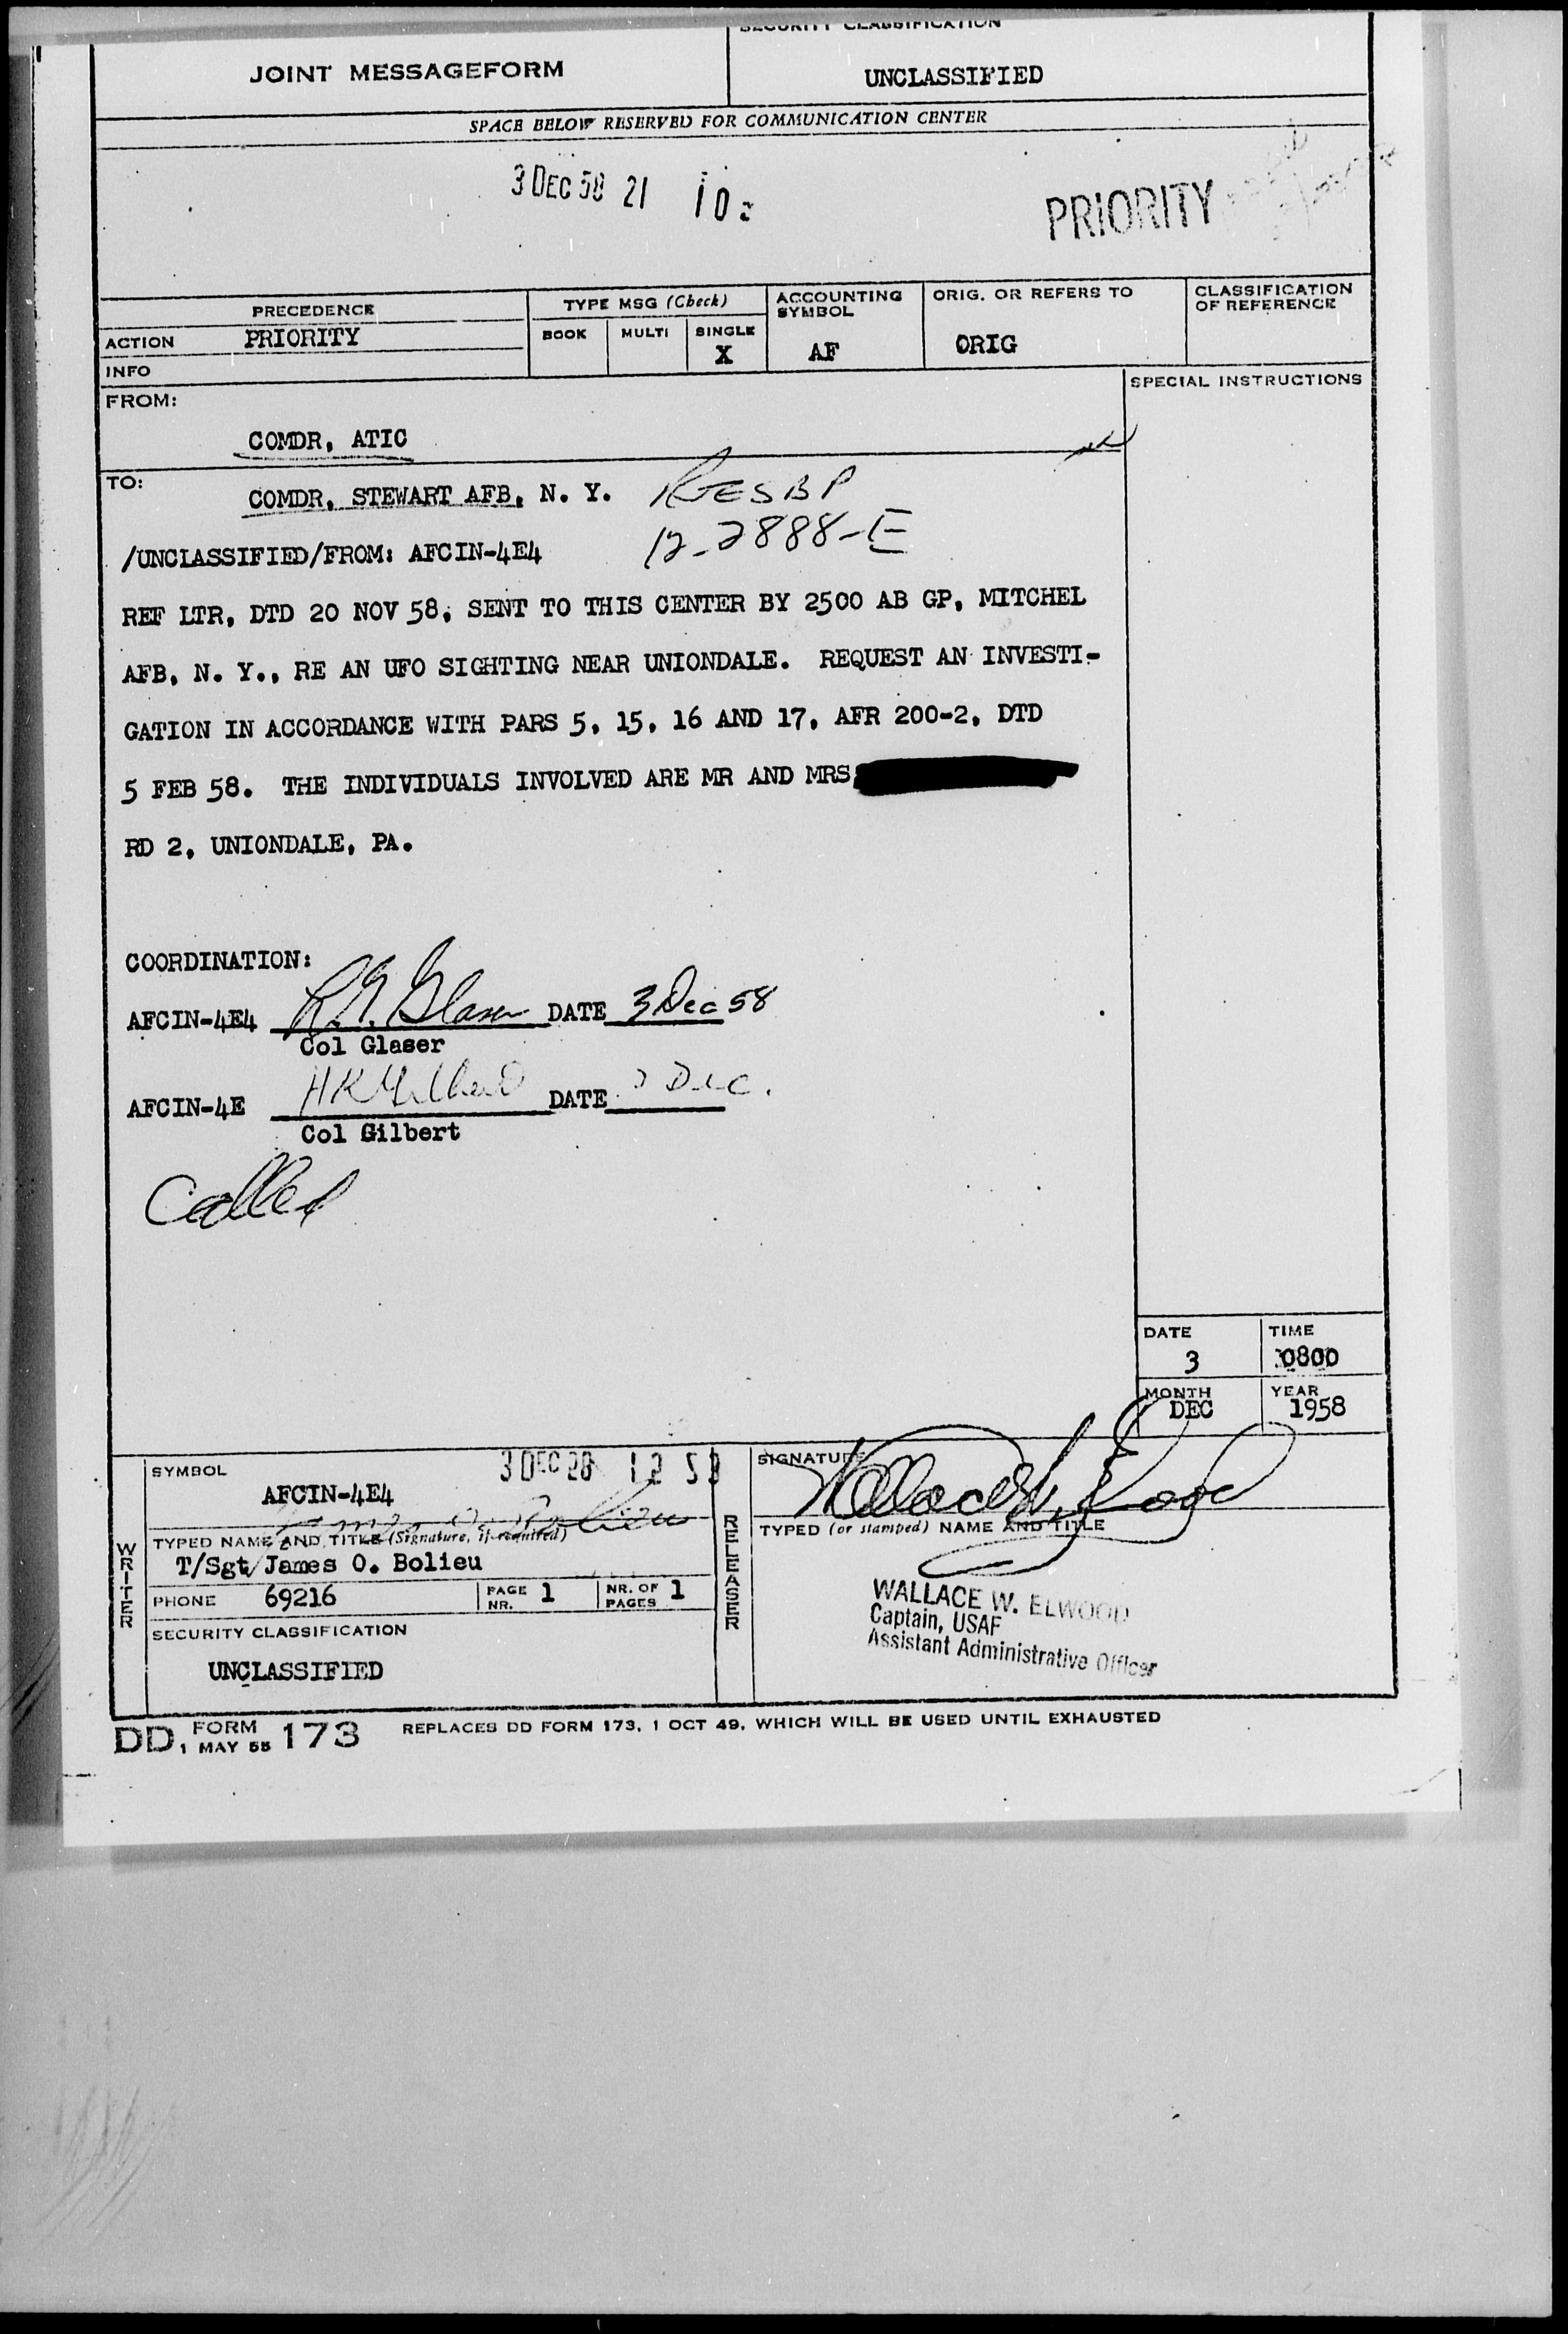 SECURITY CLASSIFICATION
JOINT MESSAGEFORM
UNCLASSIFIED
SPACE BELOW RESERVED FOR COMMUNICATION CENTER
3 DEC 58 21 10
PRIORITY
PRECEDENCE
TYPE MSG (Check)
ACCOUNTING SYMBOL
ORIG. OR REFERS TO
CLASSIFICATION OF REFERENCE
ACTION PRIORITY
BOOK MULTI SINGLE
X
AF
ORIG
INFO
FROM:
SPECIAL INSTRUCTIONS
COMDR, ATIC
TO:
COMDR, STEWART AFB, N. Y.
12-2888-E
/UNCLASSIFIED/FROM: AFCIN-4E4
REF LTR, DTD 20 NOV 58, SENT TO THIS CENTER BY 2500 AB GP, MITCHEL
AFB, N. Y., RE AN UFO SIGHTING NEAR UNIONDALE. REQUEST AN INVESTI-
GATION IN ACCORDANCE WITH PARS 5, 15, 16 AND 17, AFR 200-2, DTD
5 FEB 58. THE INDIVIDUALS INVOLVED ARE MR AND MRS
RD 2, UNIONDALE, PA.
COORDINATION:
AFCIN-4E4 DATE 3 Dec 58
Col Glaser
AFCIN-4E DATE Dec.
Col Gilbert
Called
DATE 3
TIME 0800
MONTH DEC
YEAR 1958
WRITER
SYMBOL
AFCIN-4E4
TYPED NAME AND TITLE (Signature, if required)
T/Sgt James O. Bolieu
PHONE 69216
PAGE NR. 1
NR. OF PAGES 1
SECURITY CLASSIFICATION
UNCLASSIFIED
RELEASER
SIGNATURE
Wallace W. Elwood
TYPED (or stamped) NAME AND TITLE
WALLACE W. ELWOOD
Captain, USAF
Assistant Administrative Officer
DD FORM 1 MAY 55 173 REPLACES DD FORM 173, 1 OCT 49, WHICH WILL BE USED UNTIL EXHAUSTED